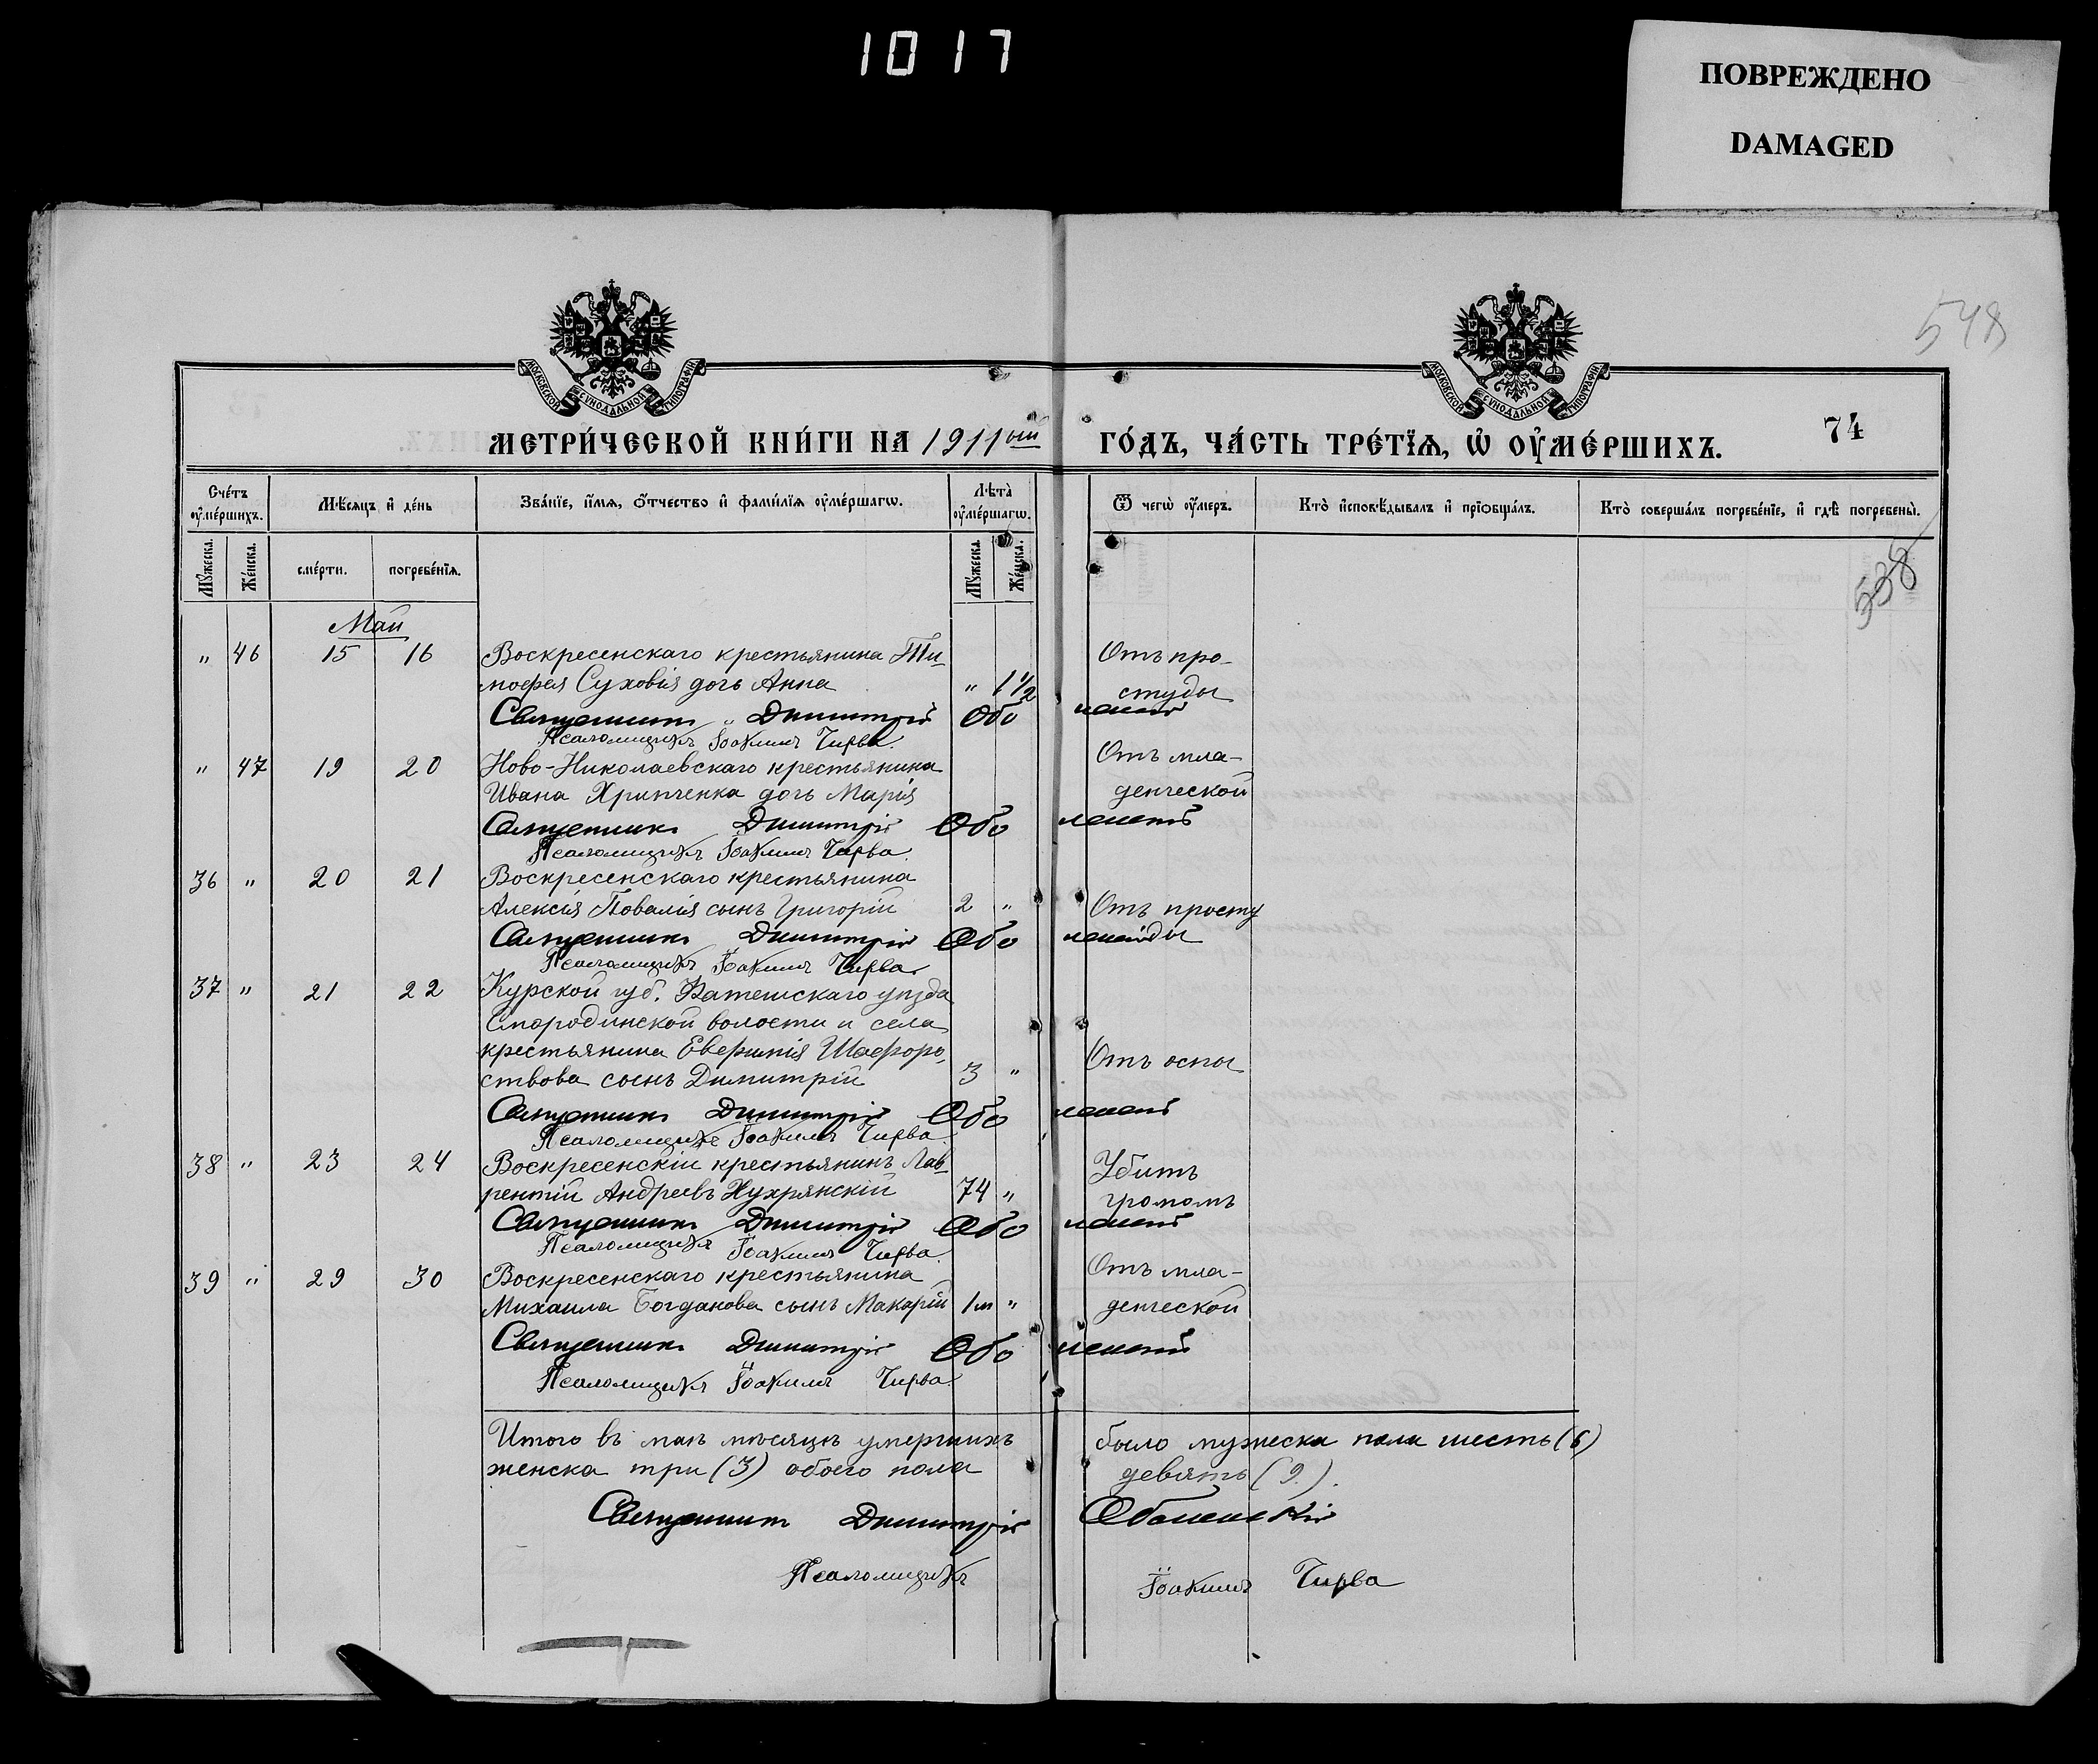 1017
ПОВРЕЖДЕНО
DAMAGED
548
МОСКОВСКОЙ СУНОДАЛЬНОЙ ТИПОГРАФІИ
МОСКОВСКОЙ СУНОДАЛЬНОЙ ТИПОГРАФІИ
МЕТРИ́ЧЕСКОЙ КНИ́ГИ НА 1911ый ГО́ДЪ, ЧА́СТЬ ТРЕ́ТЇѦ, Ѡ҆ ОУ҆МЕ́РШИХЪ. 74
Сче́тъ оу҆ме́ршихъ. Мѣ́сяцъ и҆ де́нь Зва́нїе, и҆́мя, ѻ҆́тчество и҆ фами́лїя оу҆ме́ршагѡ. Лѣ́та оу҆ме́ршагѡ. Ѿ чегѡ̀ оу҆́меръ. Кто̀ и҆сповѣ́дывалъ и҆ прїѻбща́лъ. Кто̀ соверша́лъ погребе́нїе, и҆ гдѣ̀ погребены̀.
Мꙋ́жеска. Же́нска. сме́рти. погребе́нїя. Мꙋ́жеска. Же́нска.
538
Май
" 46 15 16 Воскресенскаго крестьянина Ти-
мофея Суховія дочь Анна " 1 1/2
Отъ про-
студы
Священникъ Димитрій Оболенскій
Псаломщикъ Іоакимъ Чирва.
" 47 19 20 Ново-Николаевскаго крестьянина
Ивана Хрипченка дочь Марія
Отъ мла-
денческой
Священникъ Димитрій Оболенскій
Псаломщикъ Іоакимъ Чирва.
36 " 20 21 Воскресенскаго крестьянина
Алексія Повалія сынъ Григорій 2 " Отъ просту
ды
Священникъ Димитрій Оболенскій
Псаломщикъ Іоакимъ Чирва
37 " 21 22 Курской губ. Фатешскаго уѣзда
Смородинской волости и села
крестьянина Евфимія
сынъ Димитрій 3 " Отъ оспы
Священникъ Димитрій Оболенскій
Псаломщикъ Іоакимъ Чирва
38 " 23 24 Воскресенскій крестьянинъ Лав-
рентій Андреевъ Кухрянскій 74 "
Убитъ
громомъ
Священникъ Димитрій Оболенскій
Псаломщикъ Іоакимъ Чирва.
39 " 29 30 Воскресенскаго крестьянина
Михаила Богданова сынъ Макарій 1м "
Отъ мла-
денческой
Священникъ Димитрій Оболенскій
Псаломщикъ Іоакимъ Чирва.
Итого въ маѣ мѣсяцѣ умершихъ было мужеска пола шесть (6)
женска три (3) обоего пола девять (9).
Священникъ Димитрій Оболенскій
Псаломщикъ Іоакимъ Чирва